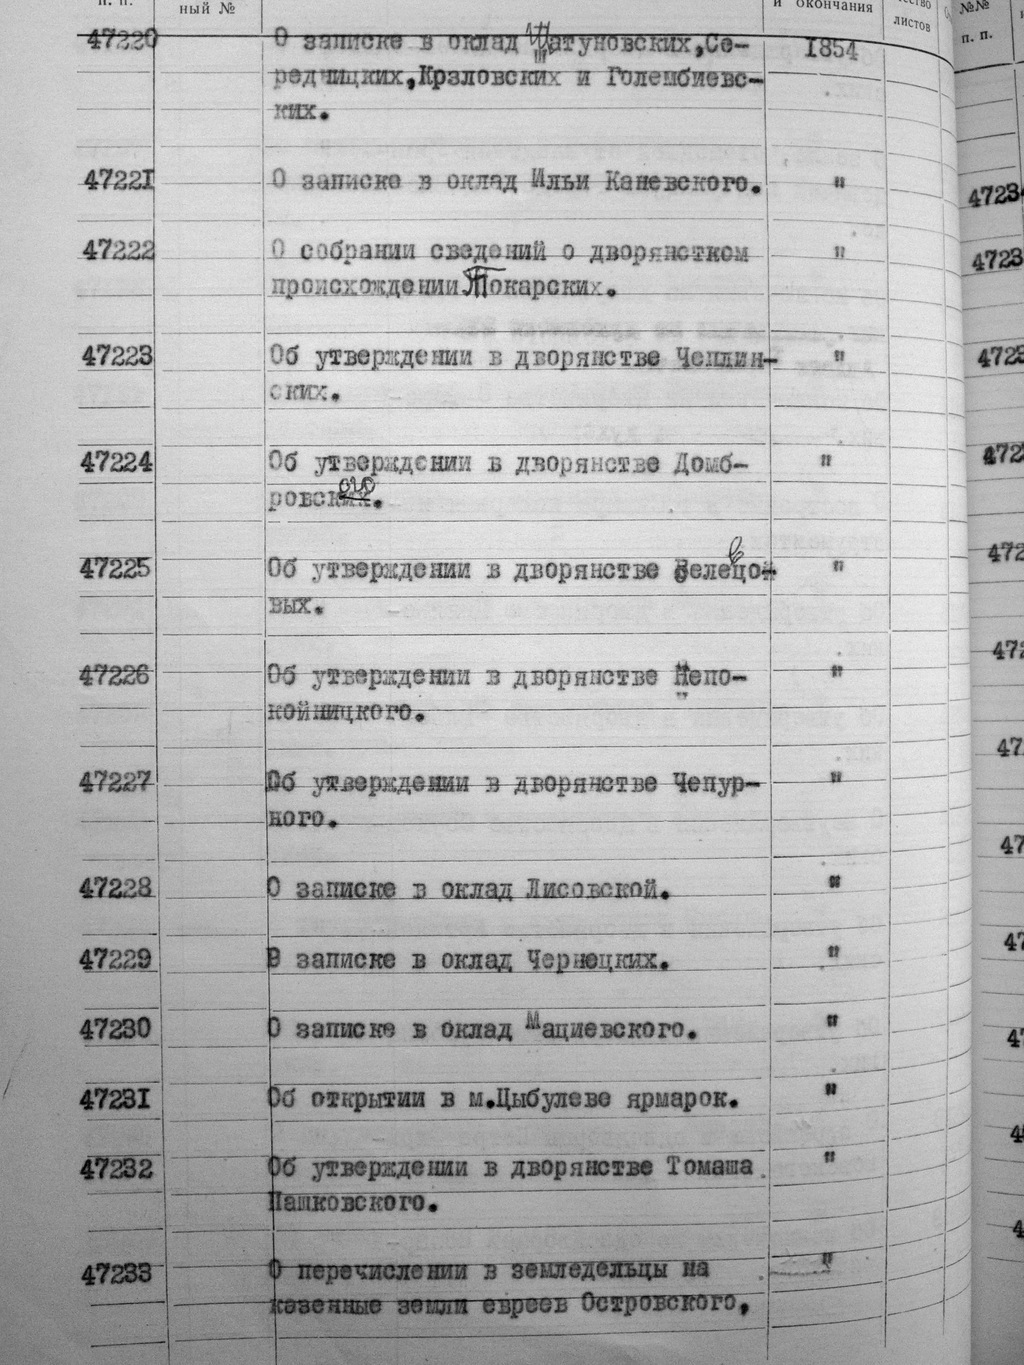 п. п. ный № и окончания листов №№ п. п.
47220 О записке в оклад Шатуновских,Се- 1854
редницких,Крзловских и Голембиевс-
ких.
47221 О записке в оклад Ильи Каневского. "
47222 О собрании сведений о дворянстком "
происхождении Токарских.
47223 Об утверждении в дворянстве Чеплин- "
ских.
47224 Об утверждении в дворянстве Домб- "
ровского.
47225 Об утверждении в дворянстве "
вых.
47226 Об утверждении в дворянстве Непо- "
койницкого.
47227 Об утверждении в дворянстве Чепур- "
ного.
47228 О записке в оклад Лисовской. "
47229 В записке в оклад Чернецких. "
47230 О записке в оклад Мациевского. "
47231 Об открытии в м.Цыбулеве ярмарок. "
47232 Об утверждении в дворянстве Томаша "
Пашковского.
47233 О перечислении в земледельцы на "
казенные земли евреев Островского,